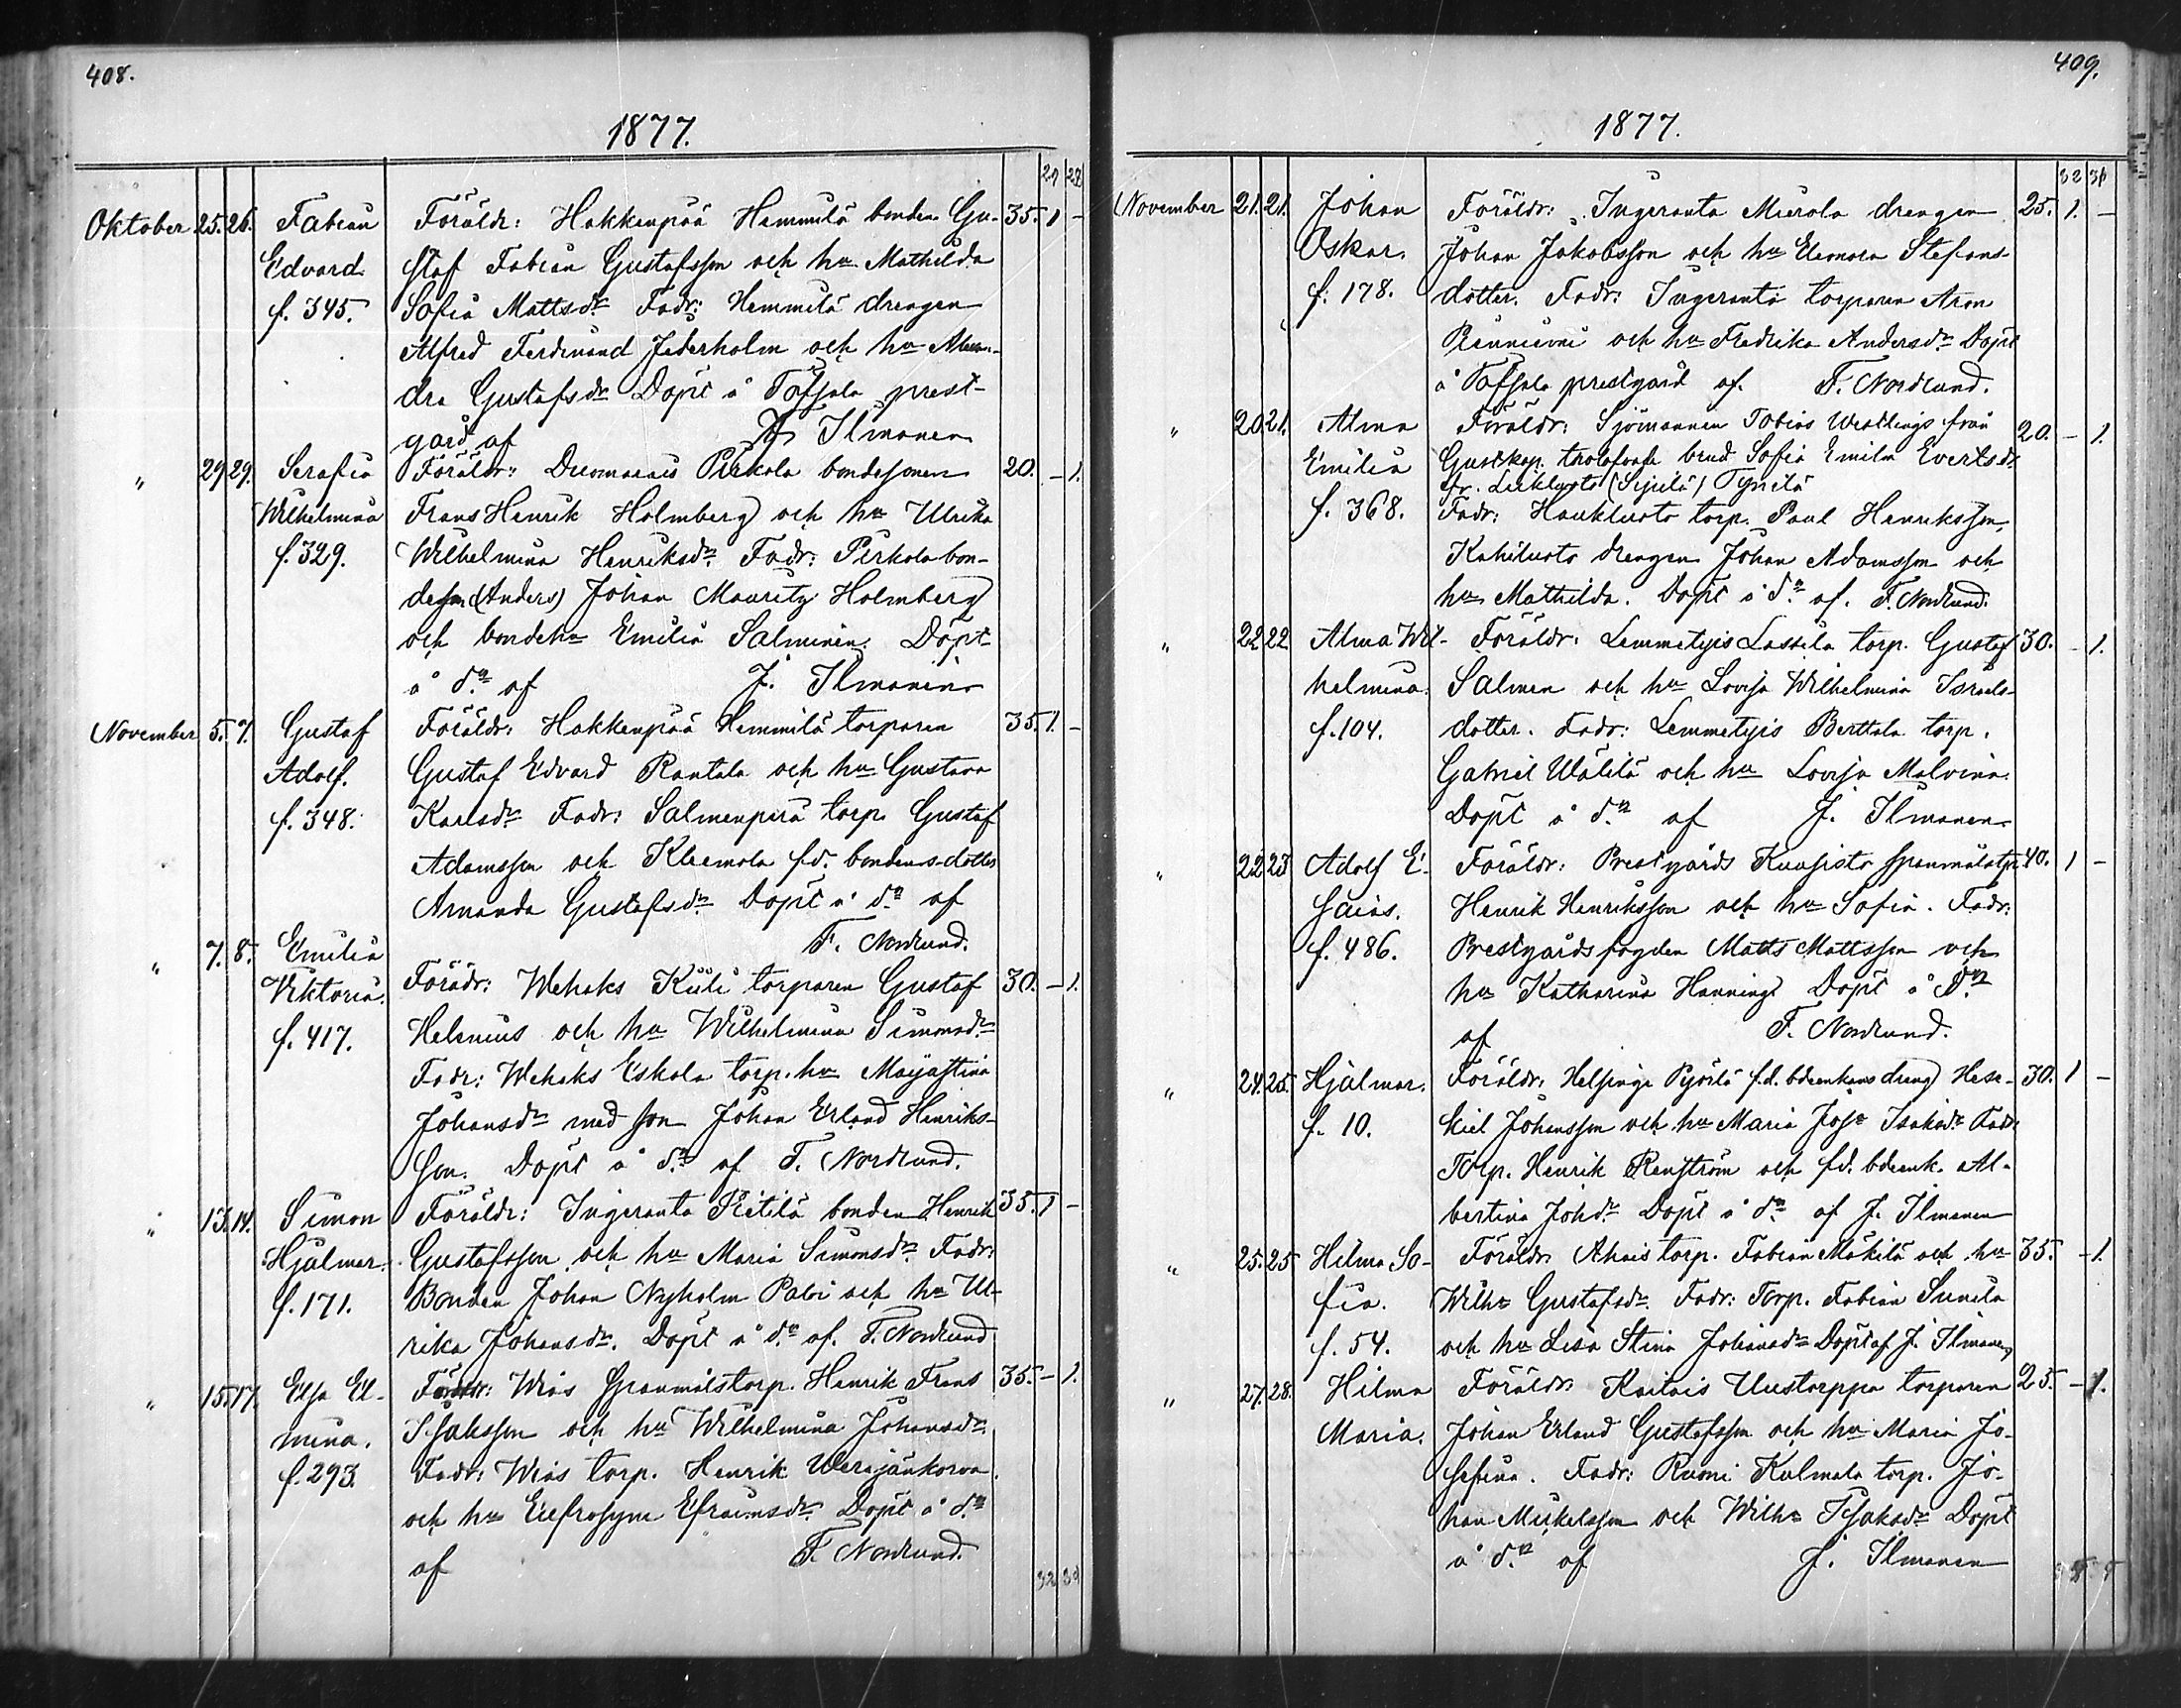 408.
1877.
Oktober 25. 26. Fabian Föräldr: Hakkenpää Hemmilä bonden Gu- 35. 1 -
Edvard. staf Fabian Gustafsson och hu Mathilda
f. 345. Sofia Mattsdr Fadr: Hemmilä drengen
Alfred Ferdinand Jederholm och hu Alexan-
dra Gustafsdr Döpt å Töfsala prest-
gård af J. Ilmonen
" 29 29. Serafia Föräldr: Pirkola bondesonen 20. - 1.
Wilhelmina Frans Henrik Holmberg och hu Ulrika
f. 329. Wilhelmina Henriksdr Fadr: Pirkola bon-
deson (Anders) Johan Mauritz Holmberg
och bondehu Emilia Salminen. Döpt
å do af J. Ilmonen
November 5. 7. Gustaf Föräldr: Hakkenpää Hemmilä torparen 35. 1. -
Adolf. Gustaf Edvard Rantala och hu Gustava
f. 348. Karlsdr Fadr: Salmenperä torp. Gustaf
Adamsson och Kleemola f.d. bondens dotter
Amanda Gustafsdr Döpt å do af
F. Nordlund.
" 7. 8. Emilia
Viktoria. Förädr: Wehaks Küli torparen Gustaf 30. - 1.
f. 417. Helenius och hu Wilhelmina Simonsdr
Fadr: Wehaks Eskola torp. hu Majastina
Johansdr med son Johan Erland Henriks-
son. Döpt å do af F. Nordlund.
" 13. 14. Simon Föräldr: Ingeranta Pietilä bonden Henrik 35. 1 -
Hjalmar. Gustafsson och hu Maria Simonsdr Fadr:
f. 171. Bonden Johan Nyholm Paloi och hu Ul-
rika Johansdr. Döpt å do af. F. Nordlund
" 15. 17. Elsa El- Föräldr: Wiais spanmålstorp. Henrik Frans 35. - 1.
mina. Isaksson och hu Wilhelmina Johansdr
f. 293. Fadr: Wiais torp. Henrik Weräjänkorva
och hu Eufrosyne Efraimsdr Döpt å do
af F. Nordlund.
409.
1877.
November 21. 21. Johan Föräldr: Ingeranta Mierola drengen 25. 1. -
Oskar. Johan Jakobsson och hu Eleonora Stefans-
f. 178. dotter. Fadr: Ingeranta torparen Aron
Pinniemi och hu Fredrika Andersdr Döpt
å Töfsala prestgård af. F. Nordlund.
" 20. 21. Alma Föräldr: Sjömannen Tobias Westlings från 20. - 1.
Emilia Gustskap. trolofvade brud Sofia Emilia Evertsdr
fr. (Sipilä) Tyrilä
f. 368. Fadr: Haukluoto torp. Paul Henriksson,
Kahiluoto drengen Johan Adamsson och
hu Mathilda. Döpt å do af. F. Nordlund.
" 22 22 Alma Wil- Föräldr: Lemmetyis Lassila torp. Gustaf 30. - 1.
helmina. Salmen och hu Lovisa Wilhelmina Israels-
f. 104. dotter. Fadr: Lemmetyis Berttala torp.
Gabriel Wälilä och hu Lovisa Malvina.
Döpt å do af J. Ilmonen
" 22 23 Adolf E- Föräldr: Prestgårds Kuusisto spanmålstp. 40. 1 -
saias. Henrik Henriksson och hu Sofia. Fadr:
f. 486. Prestgårdsfogden Matts Mattsson och
hu Katharina Hannings Döpt å do
af F. Nordlund.
" 24. 25. Hjalmar. Föräldr: Helsinge Pyörilä f.d. bdeenkans dreng Hese- 30. 1 -
f. 10. kiel Johansson och hu Maria Josa Isaksdr Fadr:
Torp. Henrik Renström och f.d. bdeenk. Al-
bertina Johdr Döpt å do af J. Ilmonen
" 25. 25 Hilma So- Föräldr: Ahais torp. Fabian Mäkilä och hu 35. - 1.
fia. Wilha Gustafsdr Fadr: Torp. Fabian Sunila
f. 54. och hu Lisa Stina Johansdr Döpt af J. Ilmonen
" 27. 28. Hilma Föräldr: Kaitais Uustorppa torparen 25. - 1.
Maria. Johan Erland Gustafsson och hu Maria Jo-
sefina. Fadr: Ruoni Kulmala torp. Jo-
han Mickelsson och Wilha Isaksdr Döpt
å do af J. Ilmonen